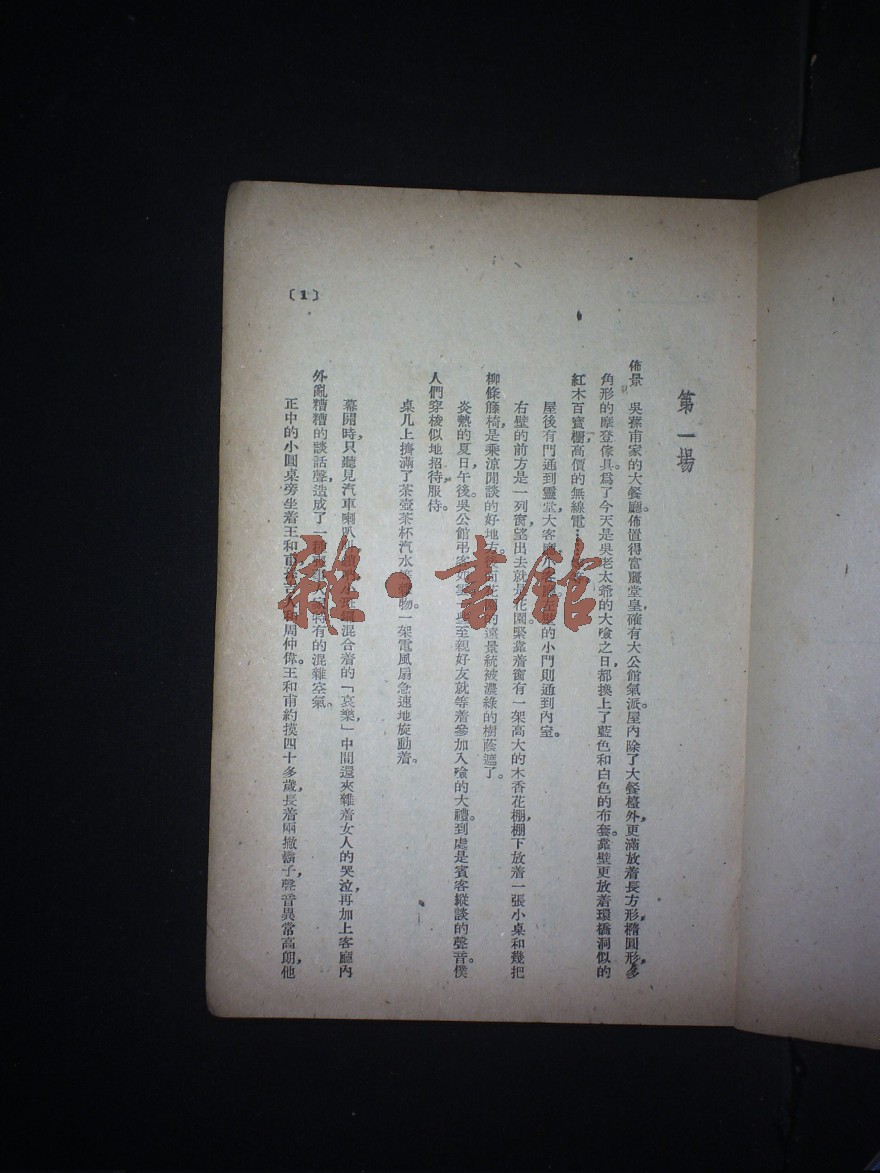 第一場
佈景　吳蓀甫家的大餐廳。佈置得富麗堂皇，確有大公館氣派。屋內除了大餐檯外，更滿放着長方形，橢圓形，多
角形的摩登傢具。爲了今天是吳老太爺的大喰之日，都換上了藍色和白色的布套。靠壁更放着環橋洞似的
紅木百寶櫥，高價的無線電……
屋後有門通到靈堂大客廳，的小門則通到內室。
右壁的前方是一列窗，望出去就是花園。緊靠着窗有一架高大的木香花棚，棚下放着一張小桌和幾把
柳條籐椅，是乘涼閒談的好地方。的遠景統被濃綠的樹蔭遮了。
炎熱的夏日，午後。吳公館弔客如雲，一些至親好友就等着參加入喰的大禮。到處是賓客縱談的聲音。僕
人們穿梭似地招待，服侍。
桌几上擠滿了茶壺茶杯汽水等物。一架電風扇急速地旋動着。
幕開時，只聽見汽車喇叭混合着的「哀樂，」中間還夾雜着女人的哭泣，再加上客廳內
外亂糟糟的談話聲，造成了一種特有的混雜空氣。
正中的小圓桌旁坐着王和甫和周仲偉。王和甫約摸四十多歲，長着兩撇鬍子，聲音異常高朗，他
〔1〕
雜·書館